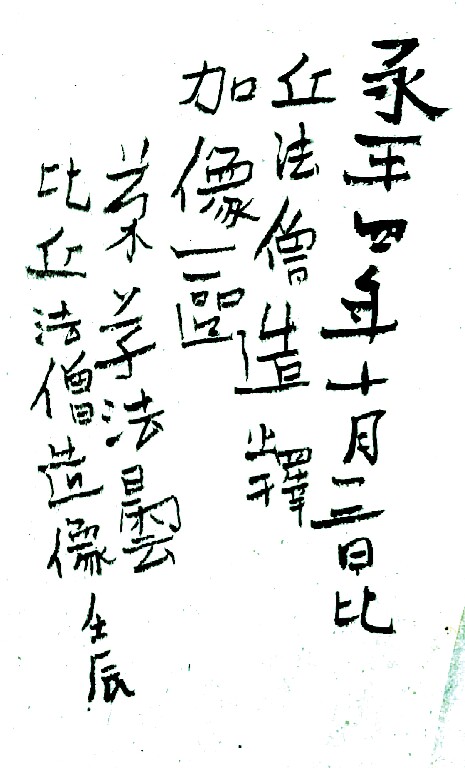 永平四年十月三日比
丘法僧造釋
加像一區
苐法曇
比丘法僧造像
壬辰